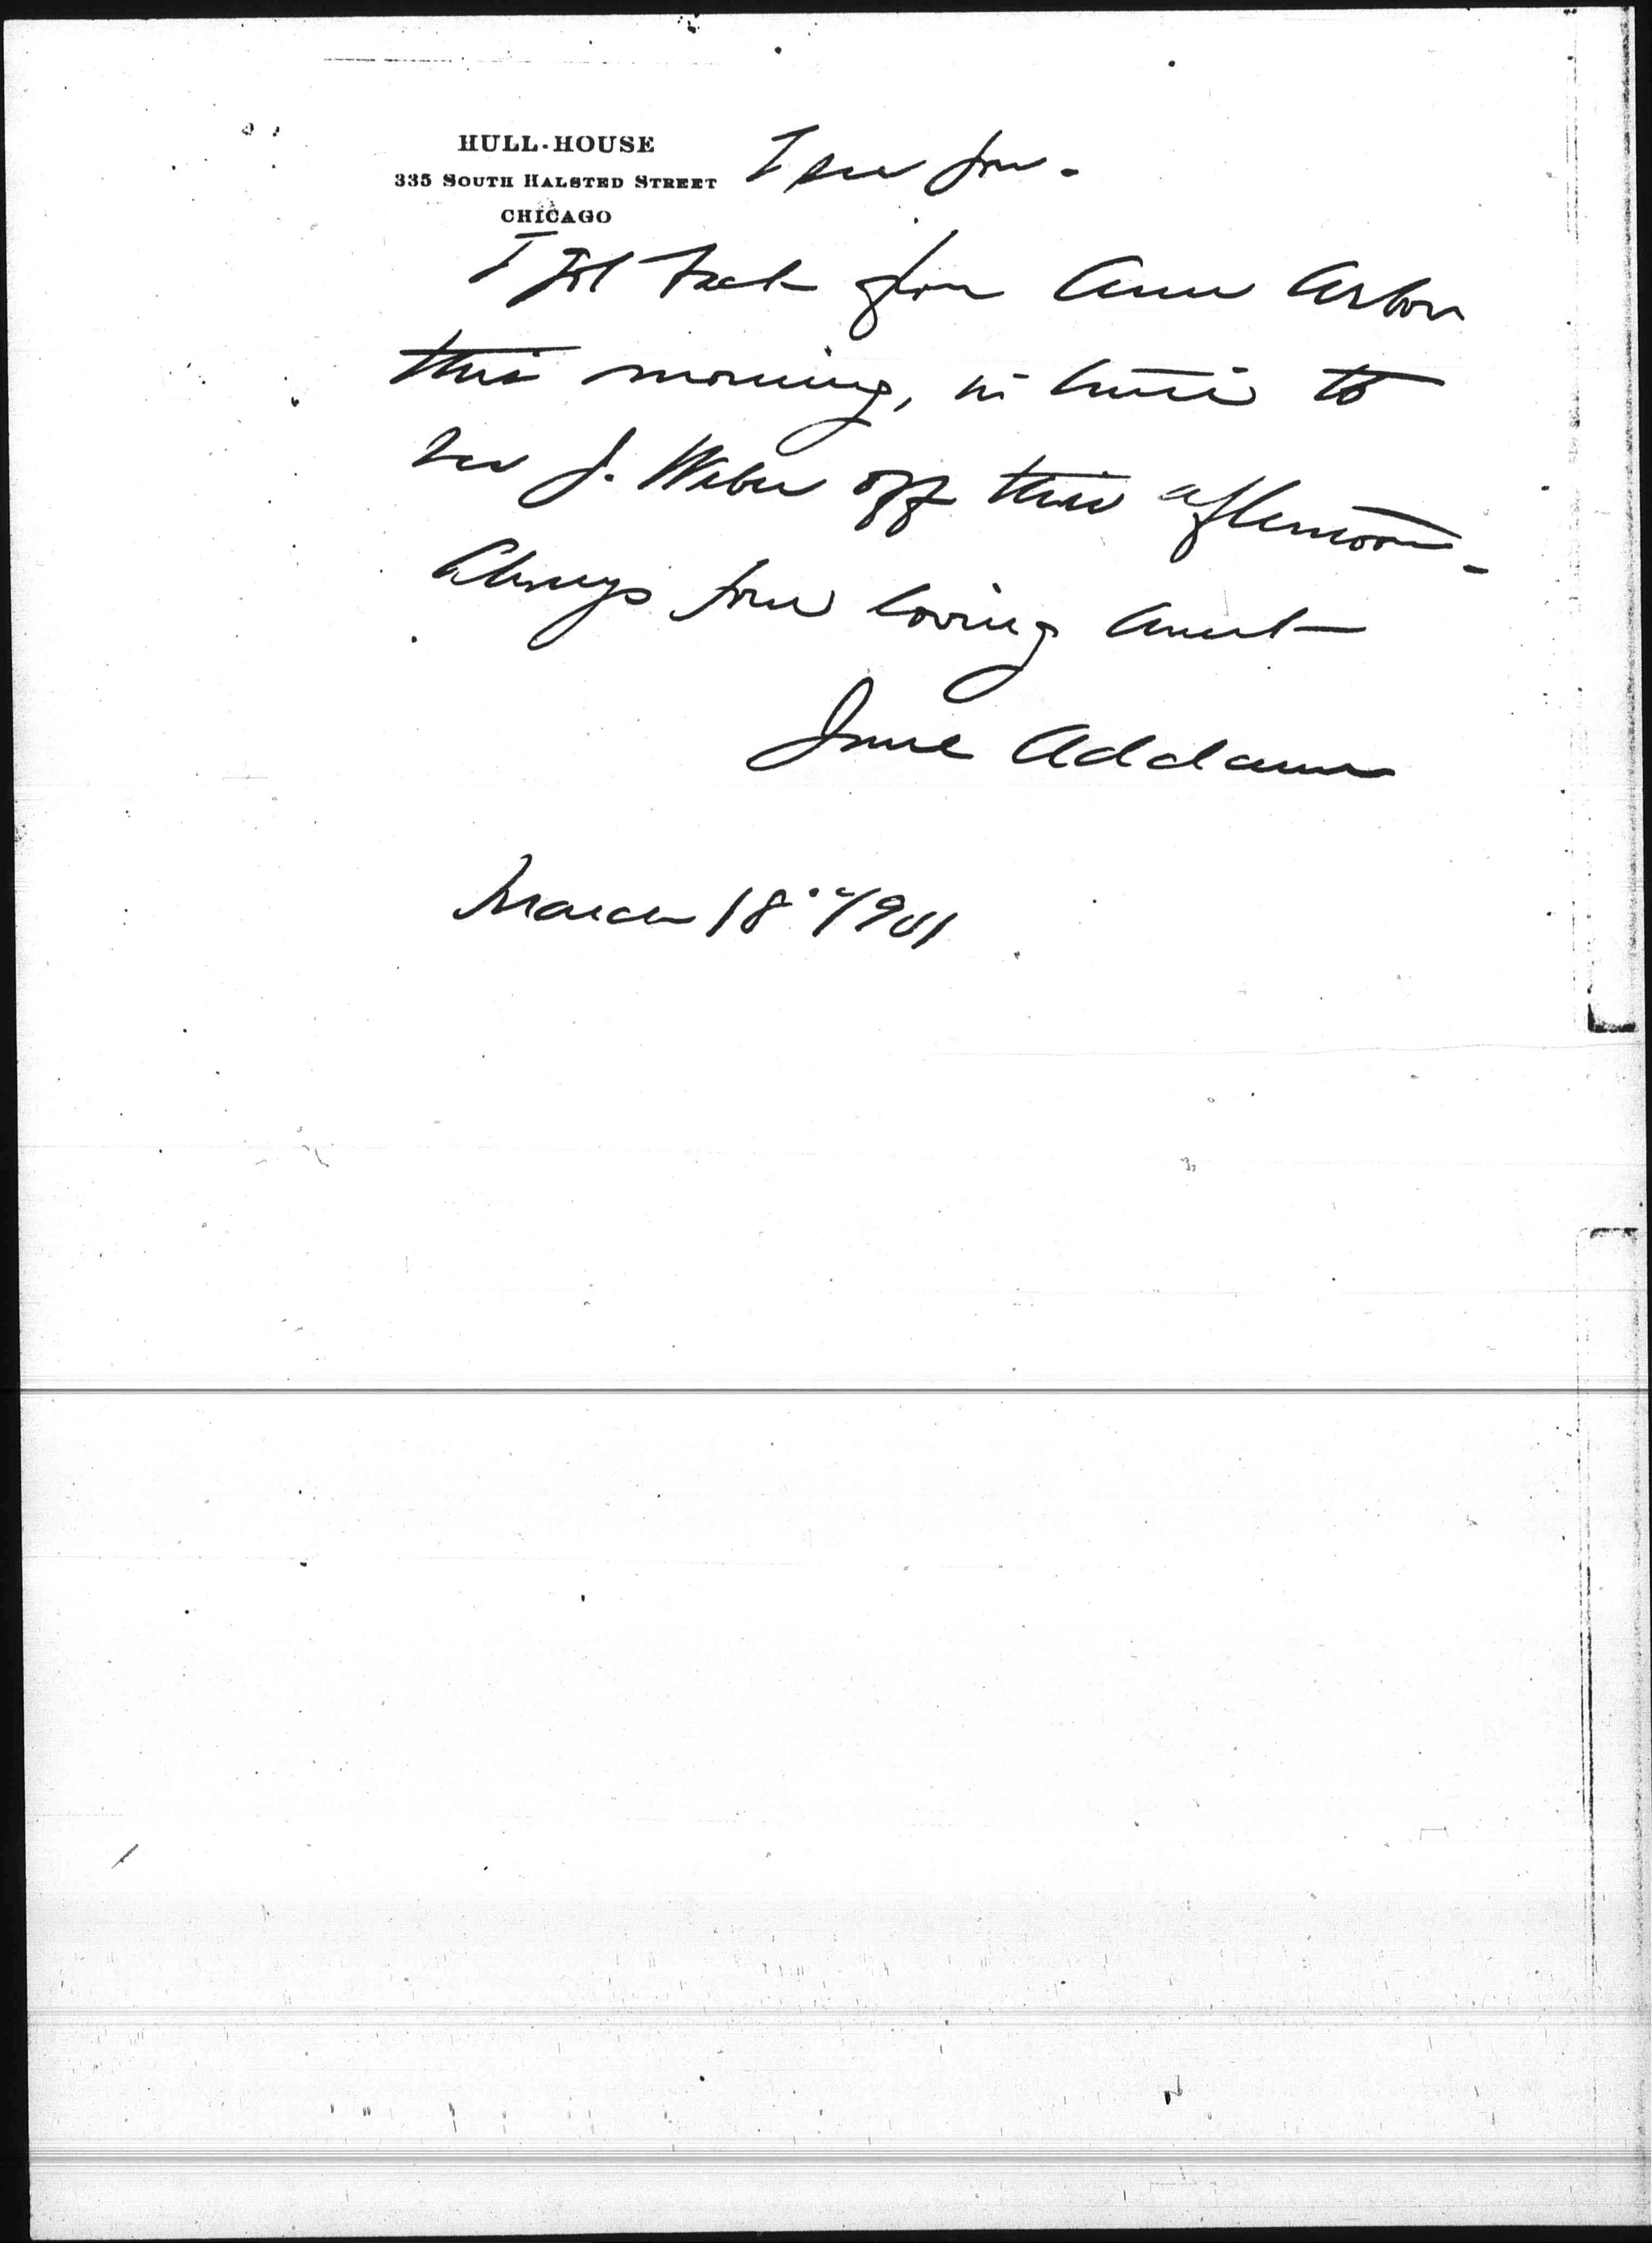 HULL-HOUSE
335 SOUTH HALSTED STREET
CHICAGO
I see you.
I got back from Ann Arbor
this morning, in time to
see J. Weber off this afternoon.
Always your loving Aunt
Jane Addams
March 18" 1901